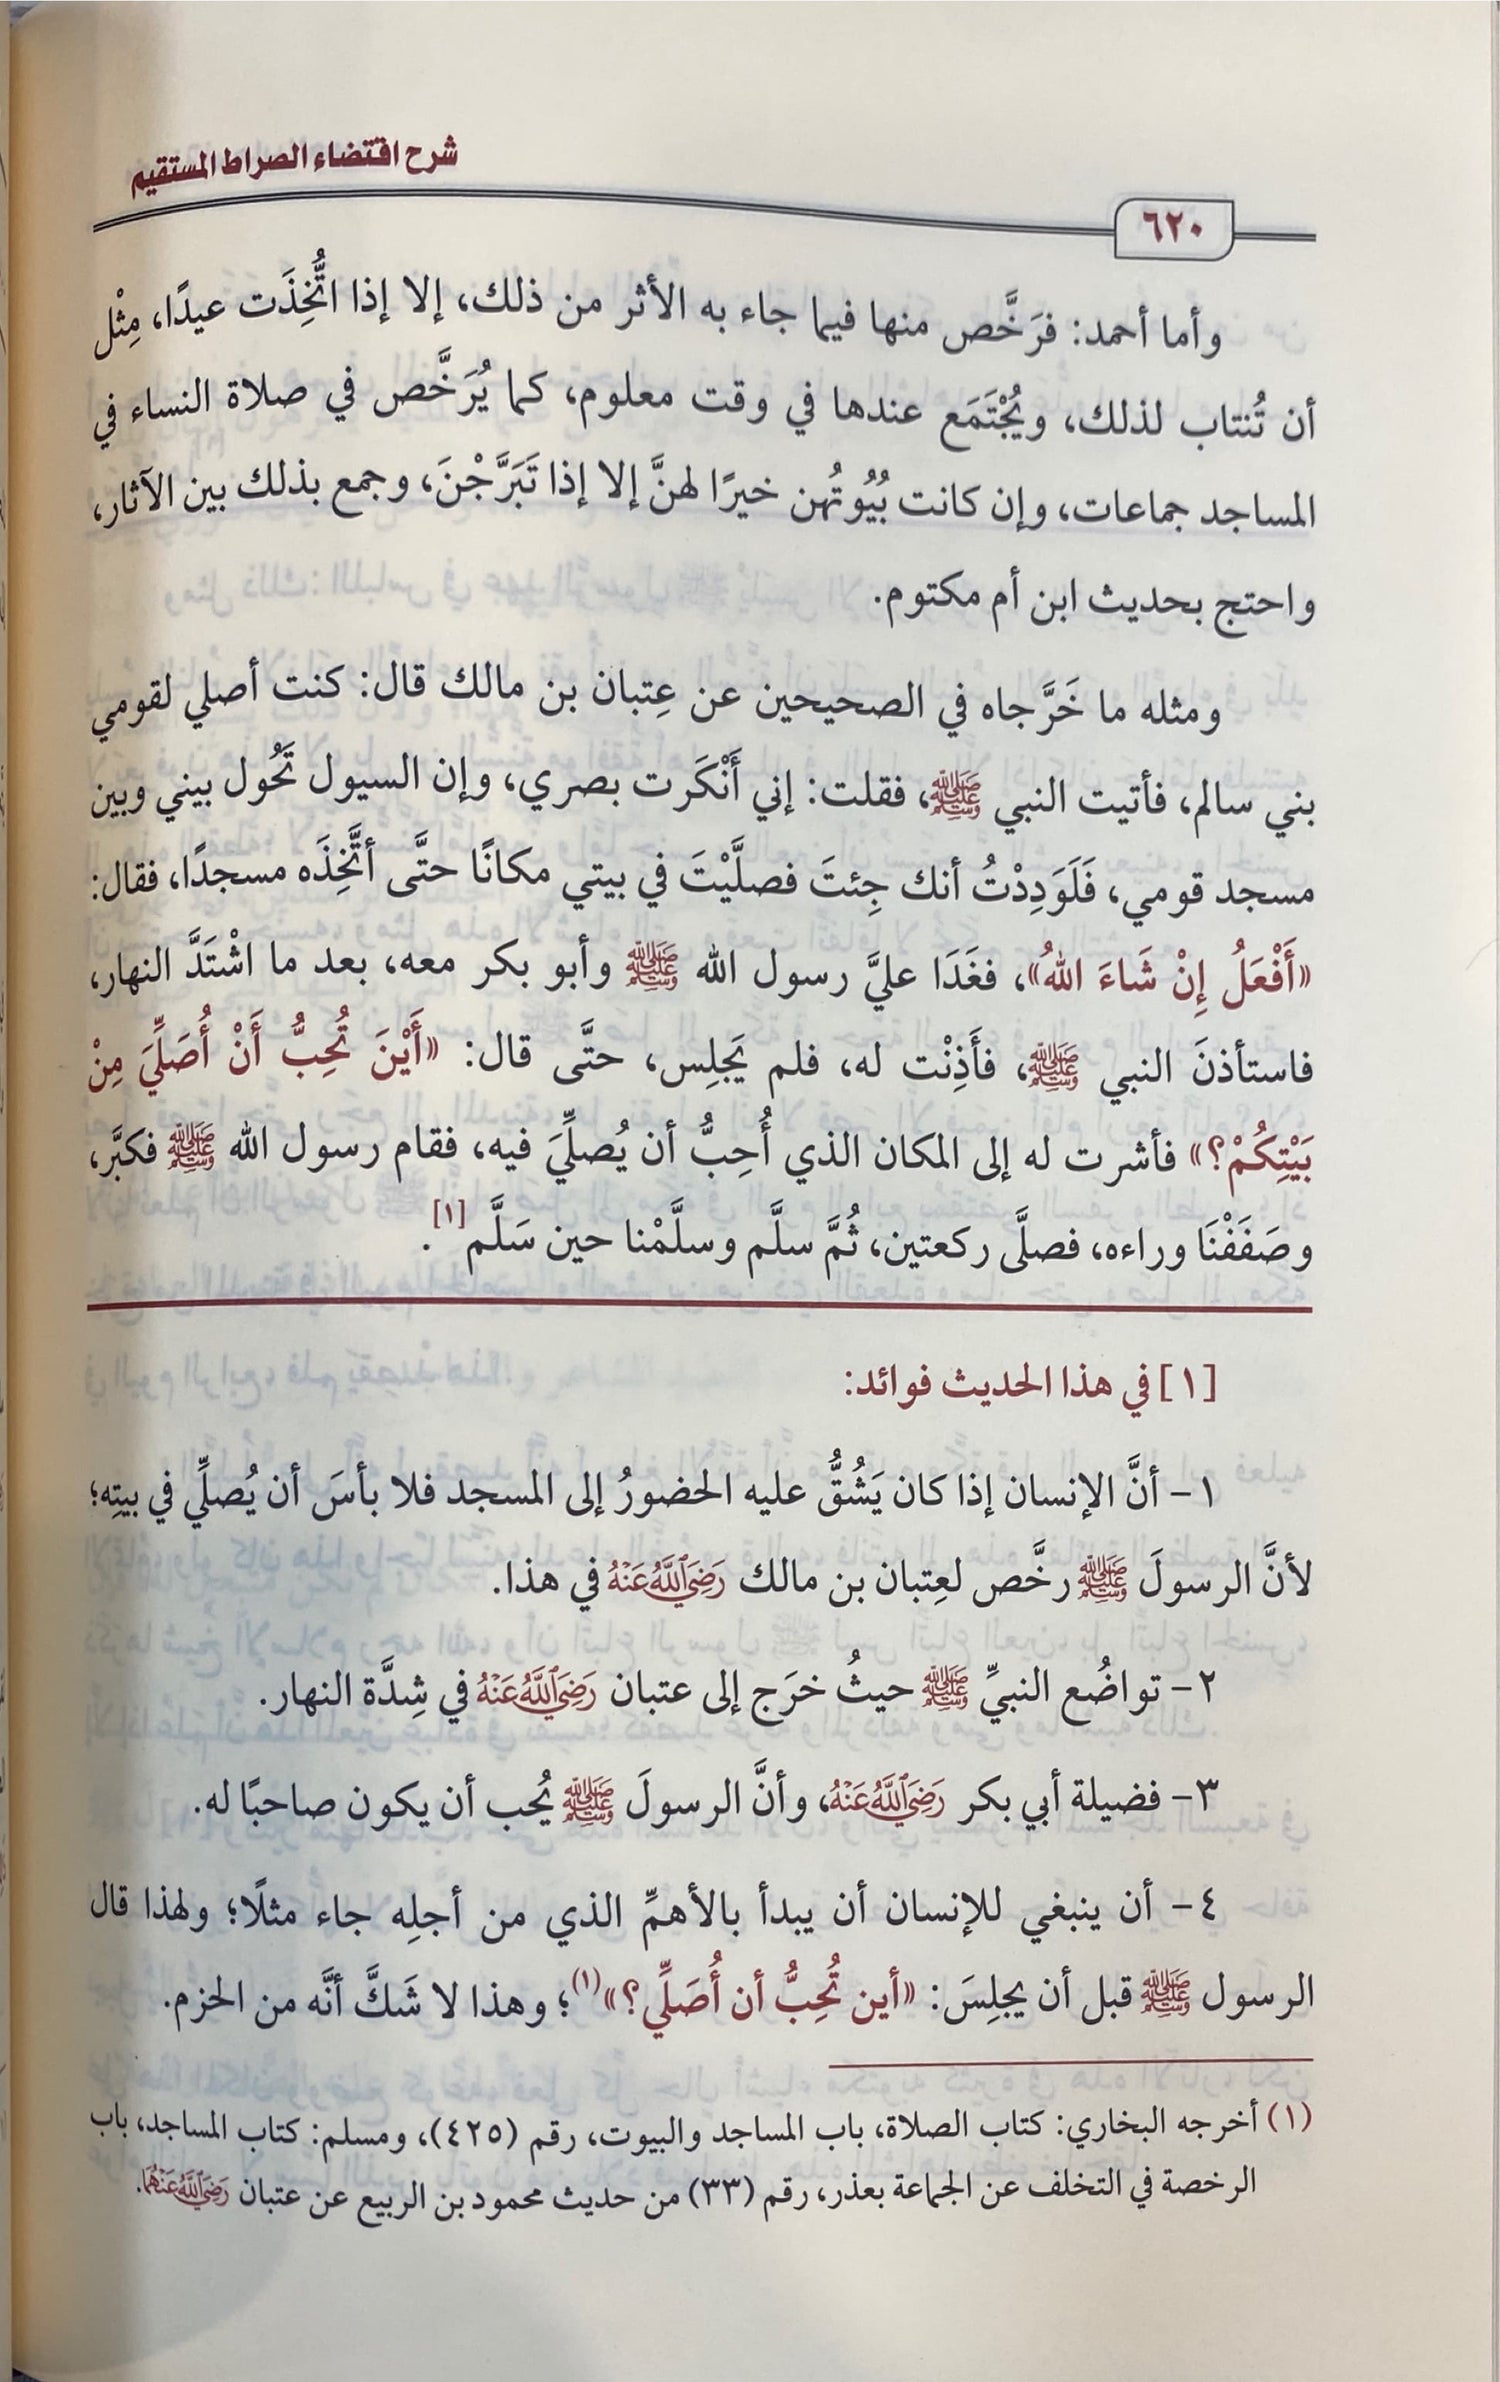 شرح اقتضاء الصراط المستقيم
٦٢٠
وأما أحمد: فرَخَّص منها فيما جاء به الأثر من ذلك، إلا إذا اتُّخِذَت عيدًا، مِثْل
أن تُنتاب لذلك، ويُجْتَمَع عندها في وقت معلوم، كما يُرَخَّص في صلاة النساء في
المساجد جماعات، وإن كانت بُيُوتُهن خيرًا لهنَّ إلا إذا تَبَرَّجْنَ، وجمع بذلك بين الآثار،
واحتج بحديث ابن أم مكتوم.
ومثله ما خَرَّجاه في الصحيحين عن عِتبان بن مالك قال: كنت أصلي لقومي
بني سالم، فأتيت النبي ﷺ، فقلت: إني أَنْكَرت بصري، وإن السيول تَحُول بيني وبين
مسجد قومي، فَلَوَدِدْتُ أنك جِئتَ فصلَّيْتَ في بيتي مكانًا حتَّى أتَّخِذَه مسجدًا، فقال:
«أَفْعَلُ إِنْ شَاءَ اللهُ»، فغَدَا عليَّ رسول الله ﷺ وأبو بكر معه، بعد ما اشْتَدَّ النهار،
فاستأذنَ النبي ﷺ، فأَذِنْت له، فلم يَجلِس، حتَّى قال: «أَيْنَ تُحِبُّ أَنْ أُصَلِّيَ مِنْ
بَيْتِكُمْ؟» فأشرت له إلى المكان الذي أُحِبُّ أن يُصلِّيَ فيه، فقام رسول الله ﷺ فكبَّر،
وصَفَفْنَا وراءه، فصلَّى ركعتين، ثُمَّ سلَّم وسلَّمْنا حين سَلَّم [١].
[١] في هذا الحديث فوائد:
١- أنَّ الإنسان إذا كان يَشُقُّ عليه الحضورُ إلى المسجد فلا بأسَ أن يُصلِّي في بيتِه؛
لأنَّ الرسولَ ﷺ رخَّص لعِتبان بن مالك رَضِيَ اللَّهُ عَنْهُ في هذا.
٢- تواضُع النبيِّ ﷺ حيثُ خرَج إلى عتبان رَضِيَ اللَّهُ عَنْهُ في شِدَّة النهار.
٣- فضيلة أبي بكر رَضِيَ اللَّهُ عَنْهُ، وأنَّ الرسولَ ﷺ يُحب أن يكون صاحبًا له.
٤- أن ينبغي للإنسان أن يبدأ بالأهمِّ الذي من أجلِه جاء مثلًا؛ ولهذا قال
الرسول ﷺ قبل أن يجلِسَ: «أين تُحِبُّ أن أُصَلِّي؟»(١)؛ وهذا لا شَكَّ أنَّه من الحزم.
(١) أخرجه البخاري: كتاب الصلاة، باب المساجد والبيوت، رقم (٤٢٥)، ومسلم: كتاب المساجد، باب
الرخصة في التخلف عن الجماعة بعذر، رقم (٣٣) من حديث محمود بن الربيع عن عتبان رَضِيَ اللَّهُ عَنْهُمَا.